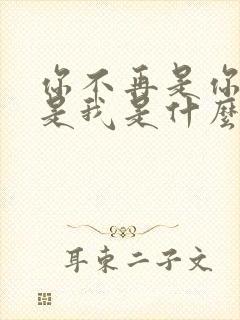 你不再是你
是我是什麼
耳東二子文